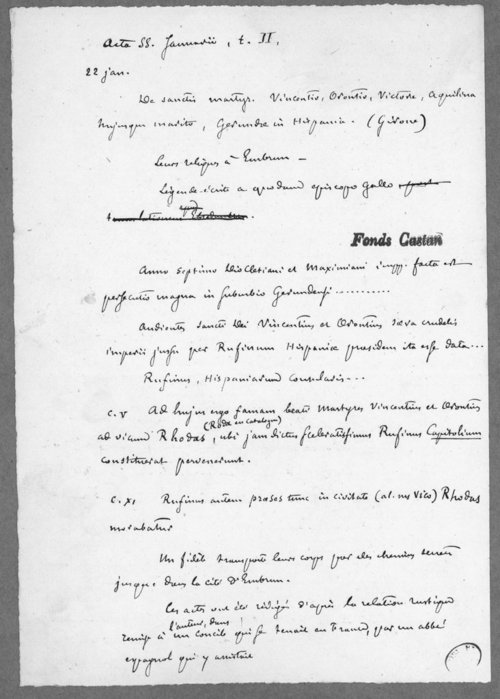 Acta SS. Januarii, t. II,
22 jan.
De sanctis martyr. Vincentio, Orontio, Victore, Aquilina
hujusque marito, Gerundæ in Hispania. (Girone)
Leurs reliques à Embrun —
Légende écrite a quodam episcopo gallo
Fonds Castan
Anno septimo Diocletiani et Maximiani impp. facta est
persecutio magna in suburbio Gerundensi ..........
Audientes sancti Dei Vincentius et Orontius sæva crudelis
imperii jussu per Rufinum Hispaniæ præsidem ita esse data...
Rufinus, Hispaniarum consularis...
c. v Ad hujus ergo famam beati Martyres Vincentius et Orontius
(Roda en Catalogne)
ad vicum Rhodas, ubi jam dictus sceleratissimus Rufinus Capitolium
constituerat pervenerunt.
c. XI Rufinus autem præses tunc in civitate (al. ms vico) Rhodas
morabatur
Un fidèle transporte leurs corps par des chemins
jusque dans la cité d'Embrun.
Les actes ont été rédigés d'après la relation rustique
l'auteur, dans
remise à un concile qui se tenait en France, par un abbé
espagnol qui y assistait